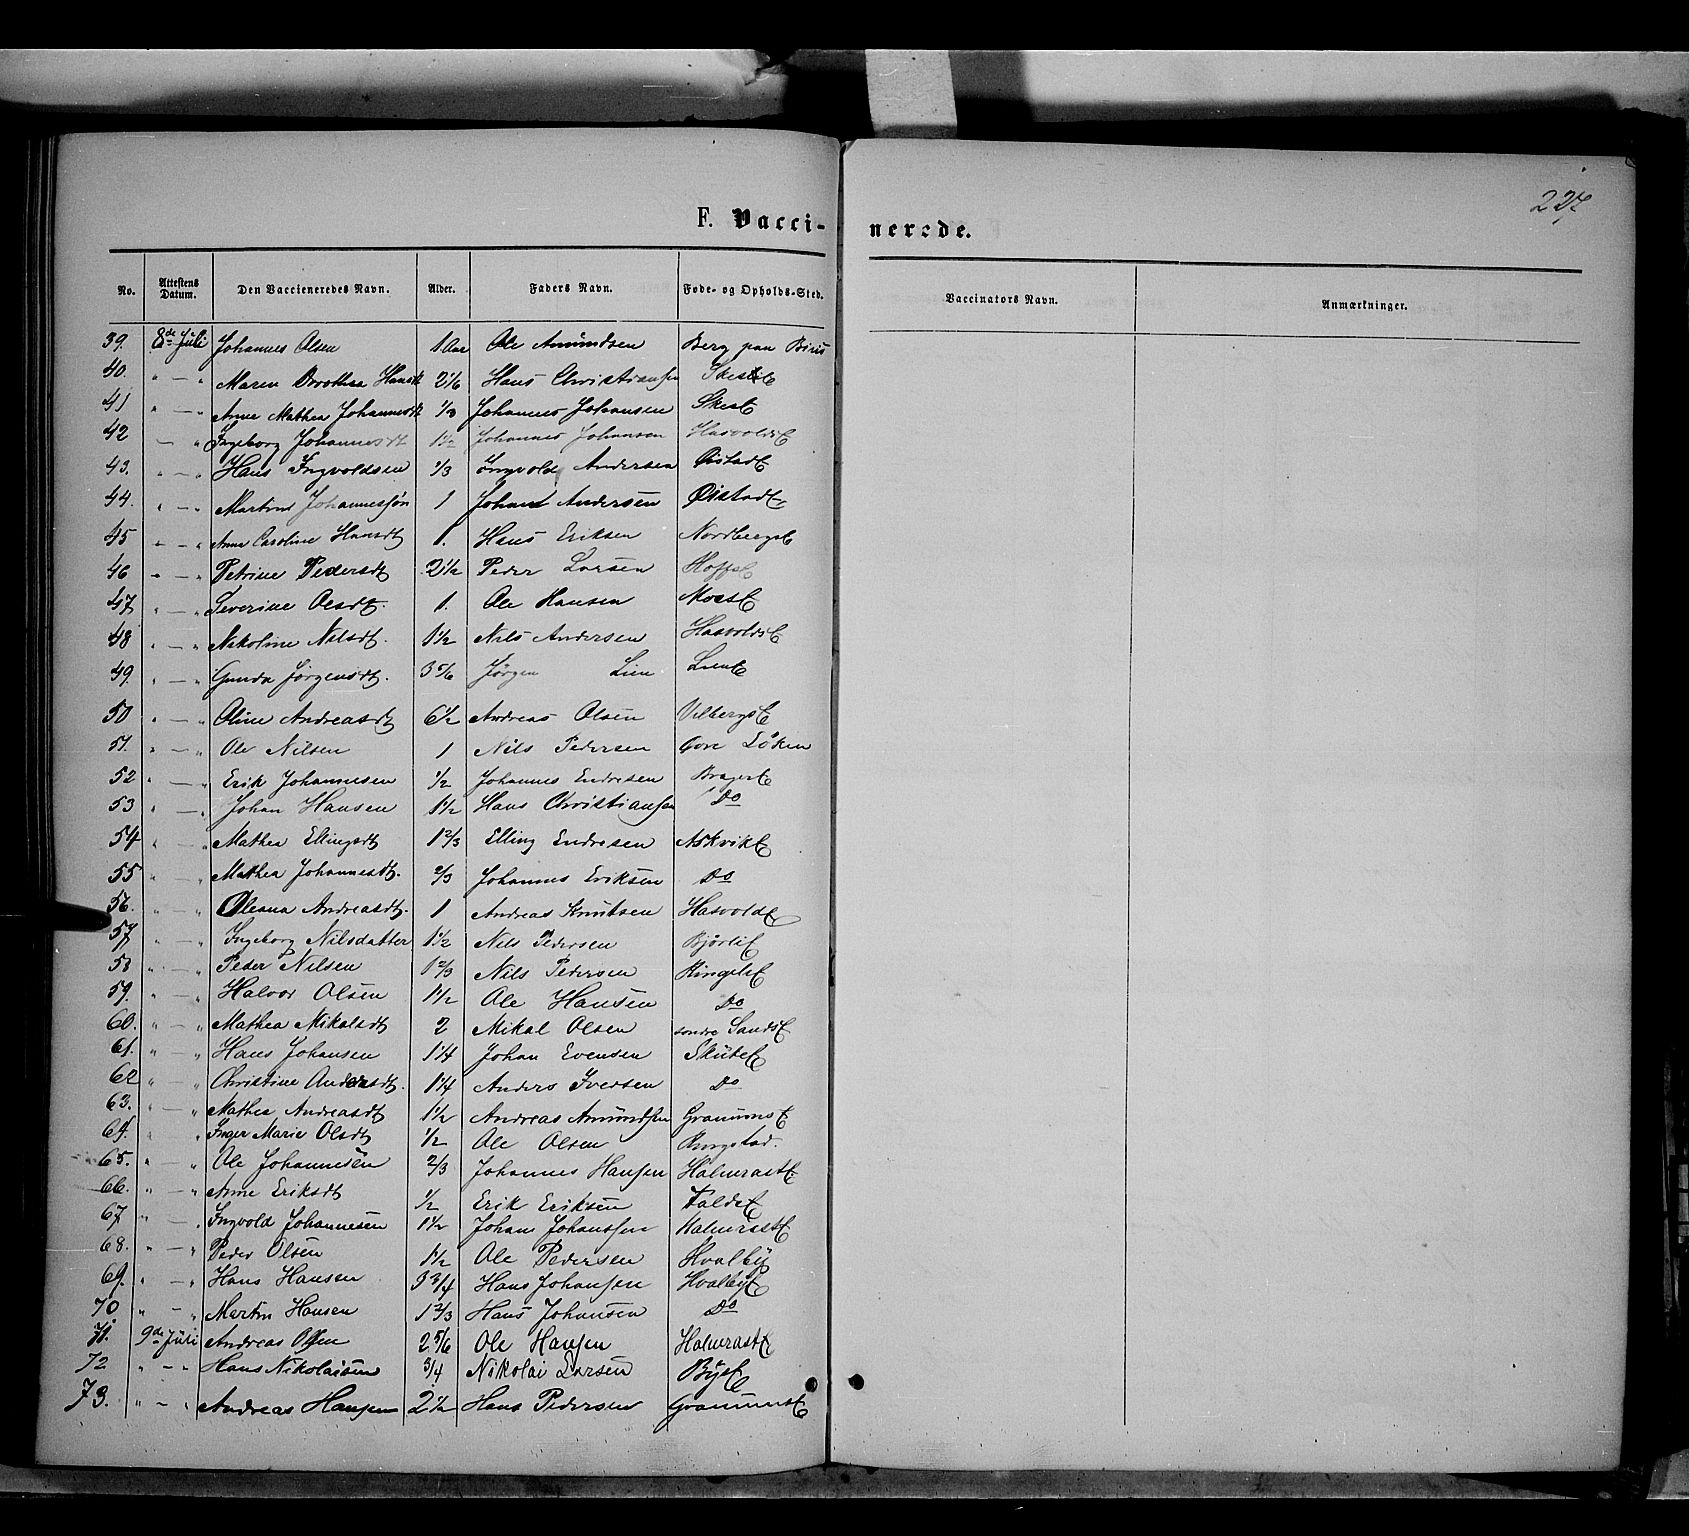 227
F. Vacci- nerede.
No. Attestens Datum. Den Vaccieneredes Navn. Alder. Faders Navn. Føde- og Opholds-Sted. Vaccinators Navn. Anmærkninger.
39. 8de Juli Johannes Olsen 1 Aar Ole Amundsen Berg paa Biris
40. " — " Maren Dorothea Hansdt 2 1/6 Hans Christiansen
41 " — " Anne Mathea Johannesdt 1/3 Johannes Johansen
42 — " Ingeborg Johannesdt 1 1/2 Johannes Johansen Hasvoldst
43. " — " Hans Ingvoldsen 1/3 Ingvold Andersen Øistadt
44. " — " Martin Johannessøn 1 Johan Andersen Øistadt
45 " — " Anne Caroline Hansdt 1. Hans Eriksen Nordbergst
46 " — " Petrine Pedersdt 2 1/2 Peder Larsen Hoffst
47 " — " Severine Olsdt. 1. Ole Hansen Moest
48 " — " Nikoline Nilsdt. 1 1/2 Nils Andersen Hasvoldst
49. " — " Gunda Jørgensdt. 3 5/6 Jørgen Lien Lient
50 " — " Oline Andreasdt 6 1/2 Andreas Olsen Vilbergst
51. " — " Ole Nilsen 1 Nils Pedersen Løken
52 " — " Erik Johannesen 1/2 Johannes Endresen Bragest
53 " — " Johan Hansen 1 1/2 Hans Christiansen Do
54 " — " Mathea Ellingsdt 1 2/3 Elling Endresen Askvikt
55 " — " Mathea Johannesdt. 2/3 Johannes Eriksen Do
56. " — " Oleana Andreasdt. 1 Andreas Knutsen Hasvoldt
57 " — " Ingeborg Nilsdatter 1 1/2 Nils Pedersen Bjørlit
58 " — " Peder Nilsen 1 2/3 Nils Pedersen Ringelst
59. " — " Halvor Olsen 1 1/2 Ole Hansen Do
60. " — " Mathea Mikalsdt 2 Mikal Olsen søndre Sandst
61. " — " Hans Johansen 1 1/4 Johan Evensen Skutet
62 " — " Christine Andersdt. 1 1/4 Anders Iversen Do
63. " — " Mathea Andreasdt 1 1/2 Andreas Amundsen Granumst
64. " " Inger Marie Olsdt 1/2 Ole Olsen Ringstad.
65. " — " Ole Johannesen 2/3 Johannes Hansen Halmrastt
66. " — " Anne Eriksdt 1/2 Erik Eriksen Faldet
67 " — " Ingvold Johannesen 1 1/2 Johan Johansen Halmrastt
68. " — " Peder Olsen 1 1/2 Ole Pedersen Hvalby
69. " — " Hans Hansen 3 3/4 Hans Johansen Hvalbyt
70 " — " Martin Hansen 1 2/3 Hans Johansen Do
71. 9de Juli Andreas Olsen 2 5/6 Ole Hansen Halmrastt
72 " — " Hans Nikolaisen 3/4 Nikolai Larsen Byst
73. " — " Andreas Hansen 2 1/2 Hans Pedersen Granumst